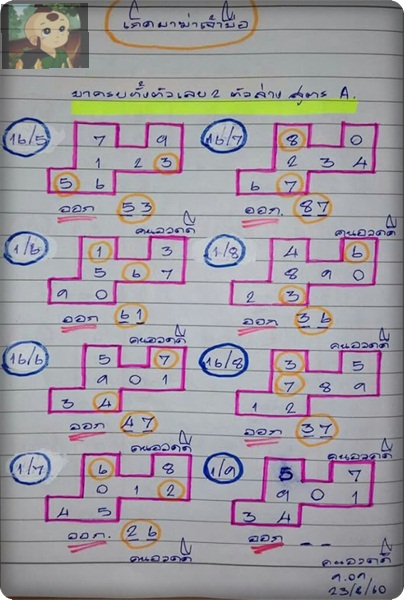 เกิดมาฆ่าเจ้ามือ
มาครบทั้งตัวเลข 2 ตัวล่าง สูตร A.
16/5 7 9
1 2 3
5 6
ออก 53
คนอวดดี
16/7 8 0
2 3 4
6 7
ออก. 87
คนอวดดี
1/6 1 3
5 6 7
9 0
ออก 61
คนอวดดี
1/8 4 6
8 9 0
2 3
ออก 36
คนอวดดี
16/6 5 7
9 0 1
3 4
ออก 47
คนอวดดี
16/8 3 5
7 8 9
1 2
ออก 37
คนอวดดี
1/7 6 8
0 1 2
4 5
ออก. 26
คนอวดดี
1/9 5 7
9 0 1
3 4
ออก _ _
คนอวดดี
23/8/60